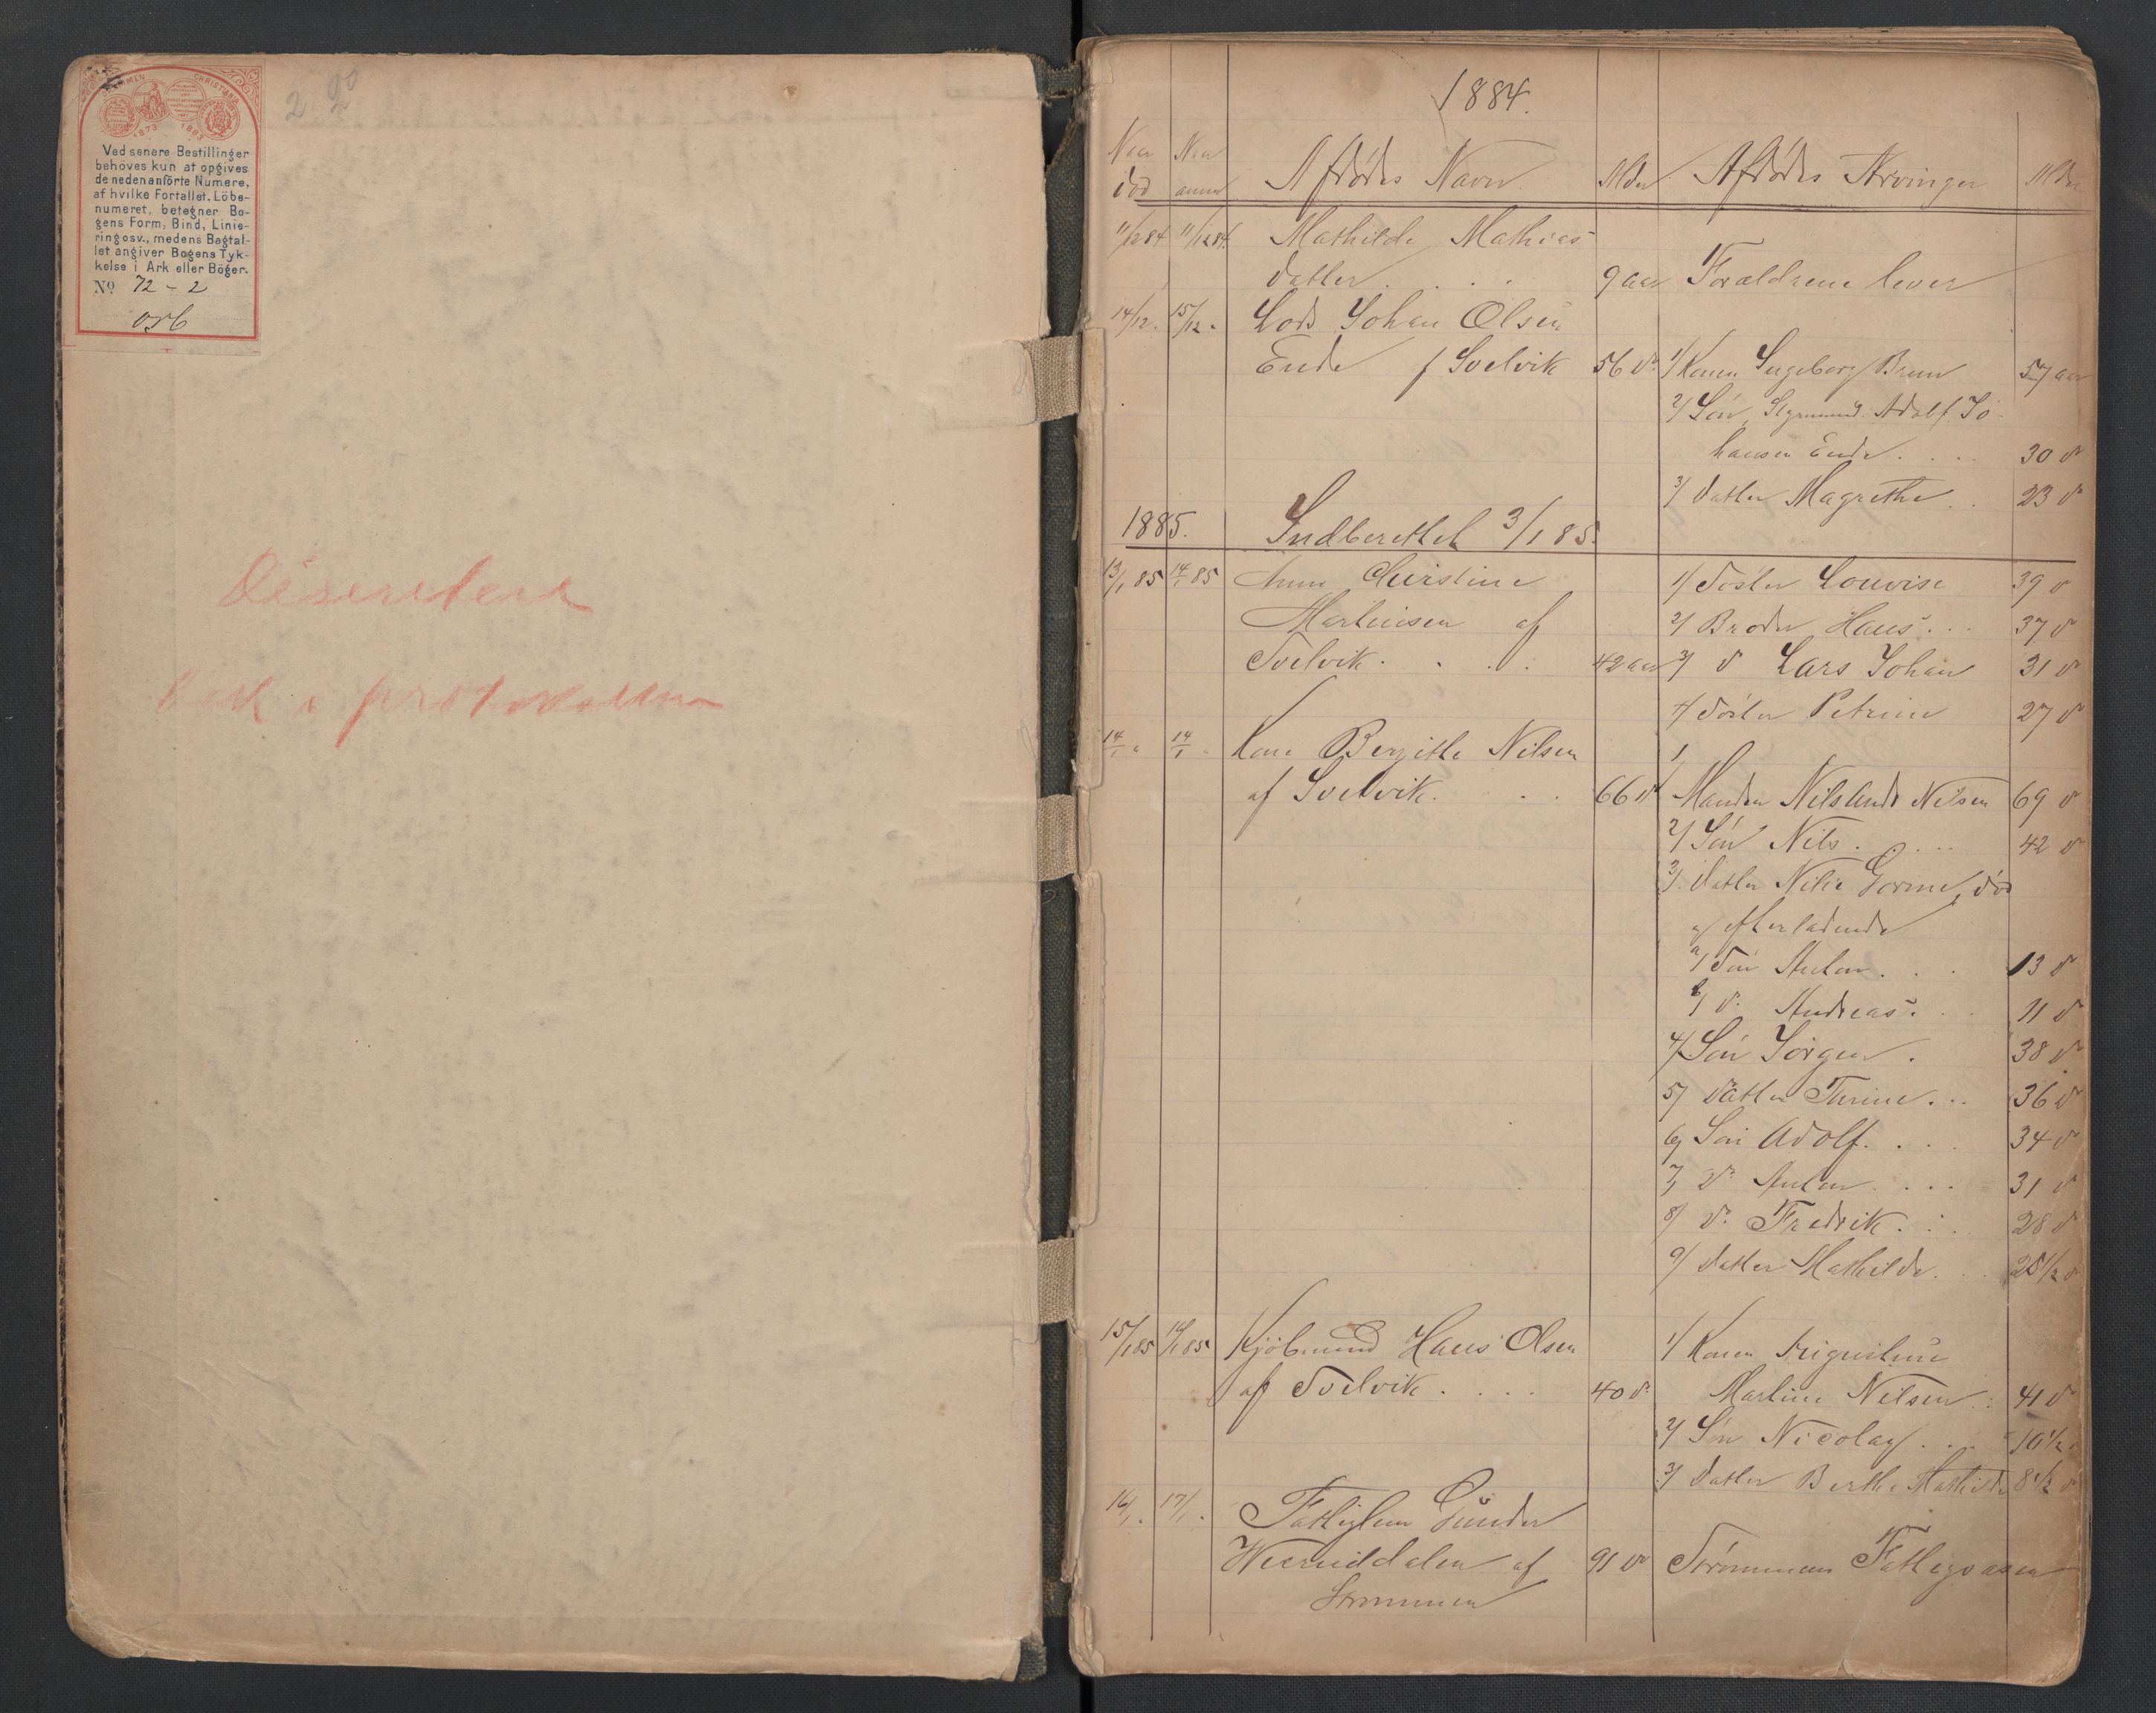 CHRISTIANIA
1873 1883
Ved senere Bestillinger
behöves kun at opgives
de nedenanförte Numere,
af hvilke Fortallet, Löbe-
numeret, betegner Bo-
gens Form, Bind, Linie-
ring osv., medens Bagtal-
let angiver Bogens Tyk-
kelse i Ark eller Böger.
No. 72 - 2
2.20
bak i protokollen
1884.
Naar død Naar anm Afdødes Navn Alder Afdødes Arvinger Alder
11/12 84 11/12 84 Mathilde Mathias
datter . . . . 9 aar Forældrene lever
14/12 . 15/12 . Lods Johan Olsen
Ende f Svelvik 56 do 1/ Konen Ingeborg Brun 57 aar
2/ Søn, Sigmund Adolf Jo-
hansen Ende . . . . 30 do
3/ datter Magrethe . . 23 do
1885. Indberettet 3/1 85.
13/1 85 14/1 85 Anne Christine 1/ Søster Lovise 39 do
Martinsen af 2/ Broder Hans . . . 37 do
Svelvik . . . . 42 aar 3/ do Lars Johan 31 do
4/ Søster Petrine 27 do
14/1 " 14/1 " Kone Bergitte Nilsen 1/
af Svelvik. . . 66 do Manden Nils Ands Nilsen 69 do
2/ Søn Nils . . . . 42 do
3/ datter Nilie Gorine, død
efterladende
a/ Søn Anton . . . 13 do
b/ do. Andreas . . 11 do
4/ Søn Jørgen . 38 do
5/ datter Thrine . . . 36 do
6/ Søn Adolf . . . 34 do
7/ do Anton . . . . 31 do
8/ do. Fredrik . . . 28 do
9/ datter Mathilde . . 25 1/2 do
15/1 85 16/1 85 Kjøbmand Hans Olsen 1/ Konen
af Svelvik . . . . 40 do Martine Nilsen . . 41 do
2/ Søn Nicolay . . . 10 1/2
3/ datter Berthe Mathilde 8 1/2 do
16/1 . 17/1 . Fattiglem Gunder
af 91 do Strømmens Fattigvæsen
Strømmen